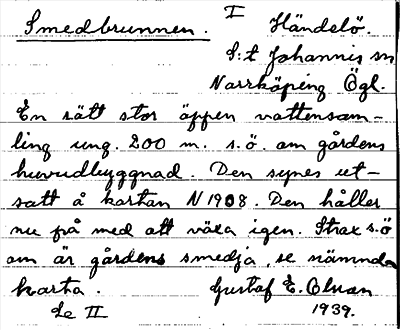 Smedbrunnen. I Händelö.
S:t Johannis sn
Norrköping Ögl.
En rätt stor öppen vattensam-
ling ung. 200 m. s.ö. om gårdens
huvudbyggnad. Den synes ut-
satt å kartan N 1908. Den håller
nu på med att växa igen. Strax s.ö
om är gårdens smedja, se nämnda
karta. Gustaf E. Olsson
Se II 1939.